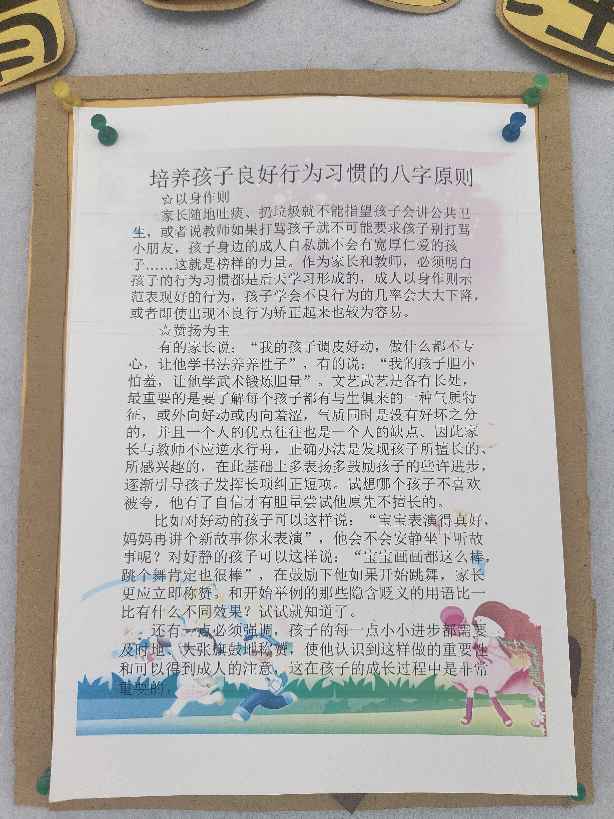 培养孩子良好行为习惯的八字原则
☆以身作则
家长随地吐痰、扔垃圾就不能指望孩子会讲公共卫
生，或者说教师如果打骂孩子就不可能要求孩子别打骂
小朋友，孩子身边的成人自私就不会有宽厚仁爱的孩
子……这就是榜样的力量。作为家长和教师，必须明白
孩子的行为习惯都是后天学习形成的，成人以身作则示
范表现好的行为，孩子学会不良行为的几率会大大下降，
或者即使出现不良行为矫正起来也较为容易。
☆赞扬为主
有的家长说：“我的孩子调皮好动，做什么都不专
心，让他学书法养养性子”，有的说：“我的孩子胆小
怕羞，让他学武术锻炼胆量”。文艺武艺是各有长处，
最重要的是要了解每个孩子都有与生俱来的一种气质特
征，或外向好动或内向羞涩，气质同时是没有好坏之分
的，并且一个人的优点往往也是一个人的缺点、因此家
长与教师不应逆水行舟，正确办法是发现孩子所擅长的、
所感兴趣的，在此基础上多表扬多鼓励孩子的些许进步，
逐渐引导孩子发挥长项纠正短项。试想哪个孩子不喜欢
被夸，他有了自信才有胆量尝试他原先不擅长的。
比如对好动的孩子可以这样说：“宝宝表演得真好，
妈妈再讲个新故事你来表演”，他会不会安静坐下听故
事呢？对好静的孩子可以这样说：“宝宝画画都这么棒，
跳个舞肯定也很棒”，在鼓励下他如果开始跳舞，家长
更应立即称赞。和开始举例的那些隐含贬义的用语比一
比有什么不同效果？试试就知道了。
还有一点必须强调，孩子的每一点小小进步都需要
及时地、大张旗鼓地称赞，使他认识到这样做的重要性
和可以得到成人的注意，这在孩子的成长过程中是非常
重要的。